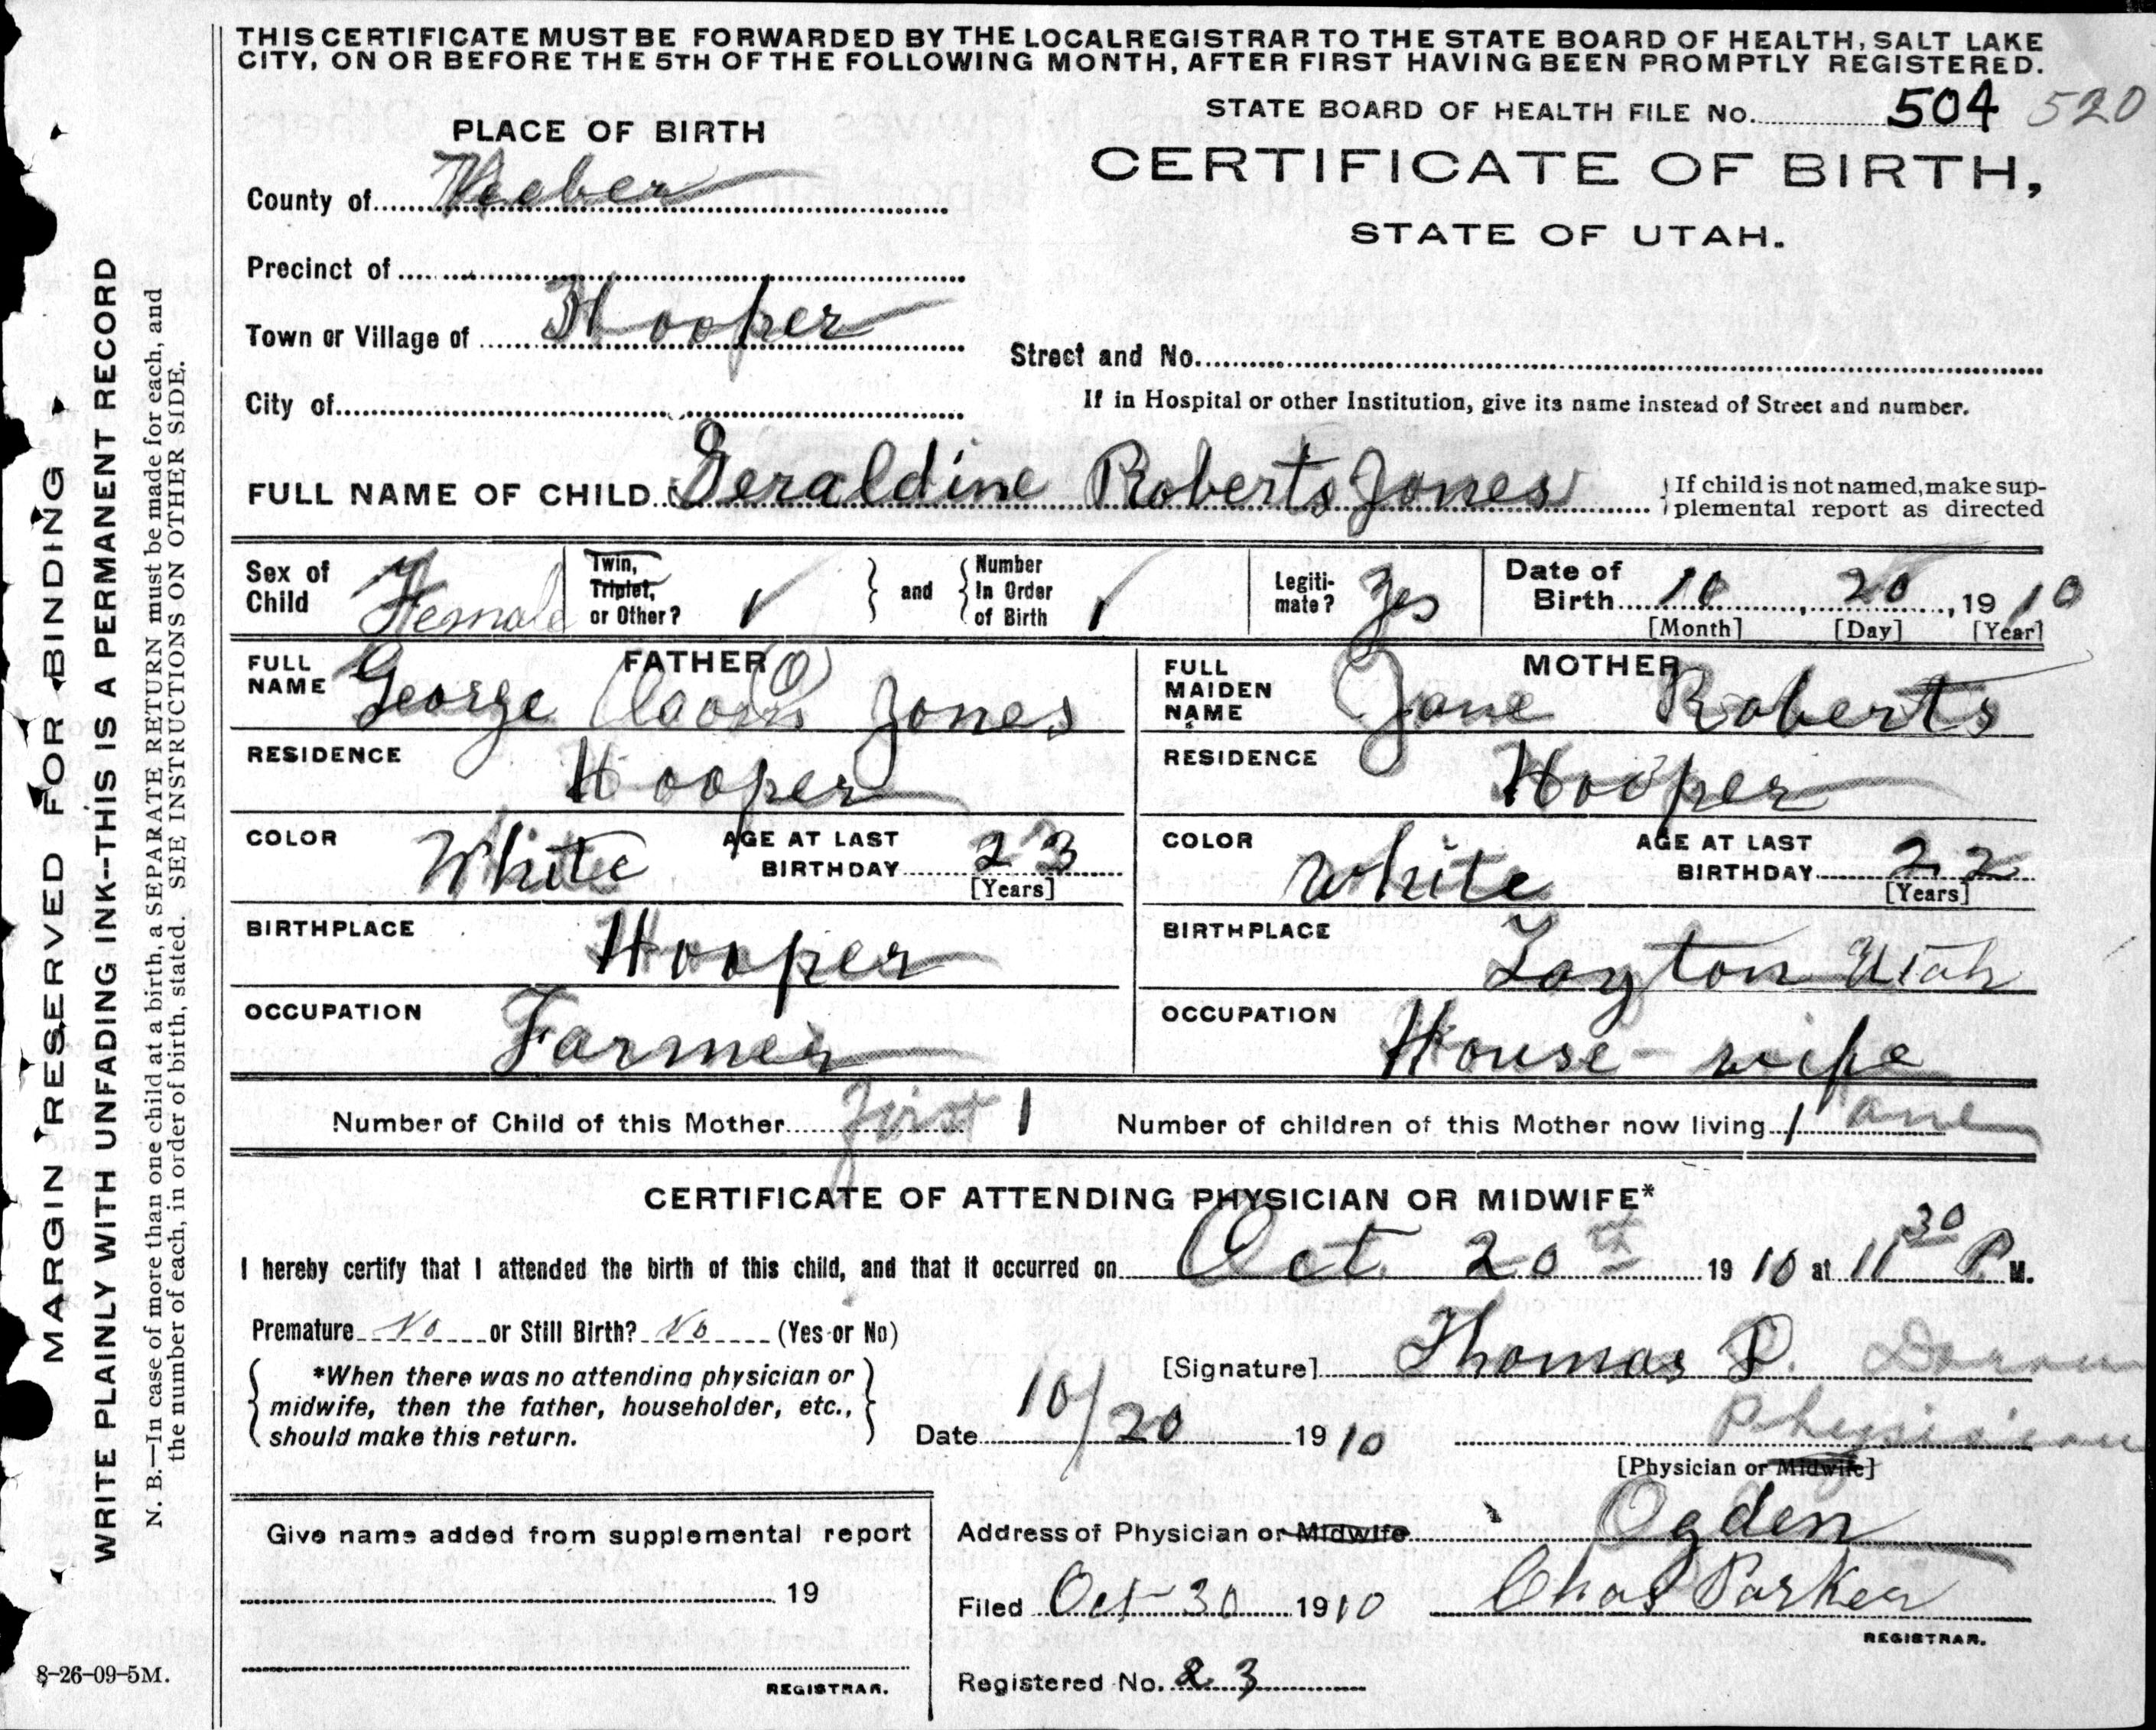 THIS CERTIFICATE MUST BE FORWARDED BY THE LOCAL REGISTRAR TO THE STATE BOARD OF HEALTH, SALT LAKE
CITY, ON OR BEFORE THE 5TH OF THE FOLLOWING MONTH, AFTER FIRST HAVING BEEN PROMPTLY REGISTERED.
STATE BOARD OF HEALTH FILE No. 504 520
PLACE OF BIRTH
CERTIFICATE OF BIRTH,
STATE OF UTAH.
County of Weber
Precinct of
Town or Village of Hooper
Street and No.
City of
If in Hospital or other Institution, give its name instead of Street and number.
FULL NAME OF CHILD Geraldine Roberts Jones
If child is not named, make sup-
plemental report as directed
Sex of Child Female
Twin, Triplet, or Other?
and
Number In Order of Birth
Legiti-mate? Yes
Date of Birth 10, 20, 1910
[Month] [Day] [Year]
FATHER
FULL NAME George Jones
MOTHER
FULL MAIDEN NAME Jane Roberts
RESIDENCE Hooper
RESIDENCE Hooper
COLOR White AGE AT LAST BIRTHDAY 23 [Years]
COLOR White AGE AT LAST BIRTHDAY 22 [Years]
BIRTHPLACE Hooper
BIRTHPLACE Layton Utah
OCCUPATION Farmer
OCCUPATION House-wife
Number of Child of this Mother first 1
Number of children of this Mother now living 1 one
CERTIFICATE OF ATTENDING PHYSICIAN OR MIDWIFE*
I hereby certify that I attended the birth of this child, and that it occurred on Oct. 20th 1910 at 11 30 P. M.
Premature No or Still Birth? No (Yes or No)
[Signature] Thomas P.
*When there was no attending physician or
midwife, then the father, householder, etc.,
should make this return.
Date 10/20 1910
Physician
[Physician or Midwife]
Give name added from supplemental report
19
REGISTRAR.
Address of Physician or Midwife Ogden
Filed Oct 30 1910 Chas Parker
REGISTRAR.
Registered No. 23
MARGIN RESERVED FOR BINDING
WRITE PLAINLY WITH UNFADING INK--THIS IS A PERMANENT RECORD
N. B.—In case of more than one child at a birth, a SEPARATE RETURN must be made for each, and
the number of each, in order of birth, stated. SEE INSTRUCTIONS ON OTHER SIDE.
8-26-09-5M.